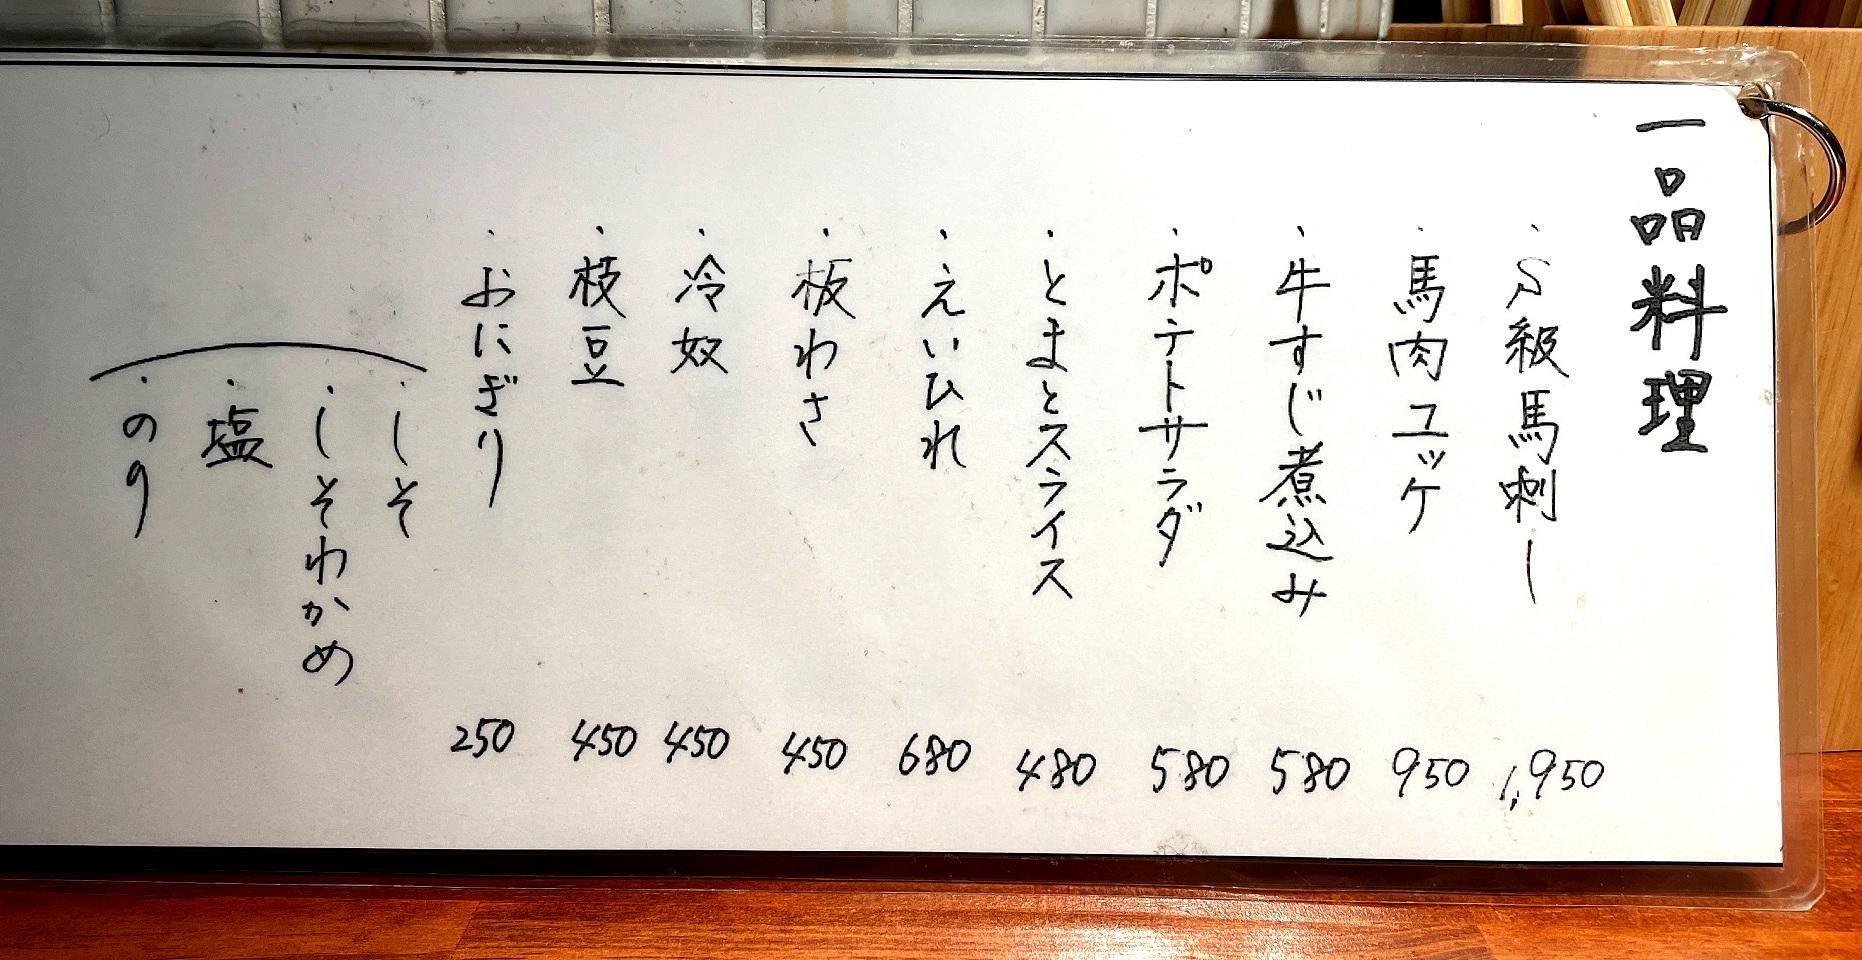 一品料理
・S級馬刺し 1,950
・馬肉ユッケ 950
・牛すじ煮込み 580
・ポテトサラダ 580
・とまとスライス 480
・えいひれ 680
・板わさ 450
・冷奴 450
・枝豆 450
・おにぎり 250
・しそ
・しそわかめ
・塩
・のり